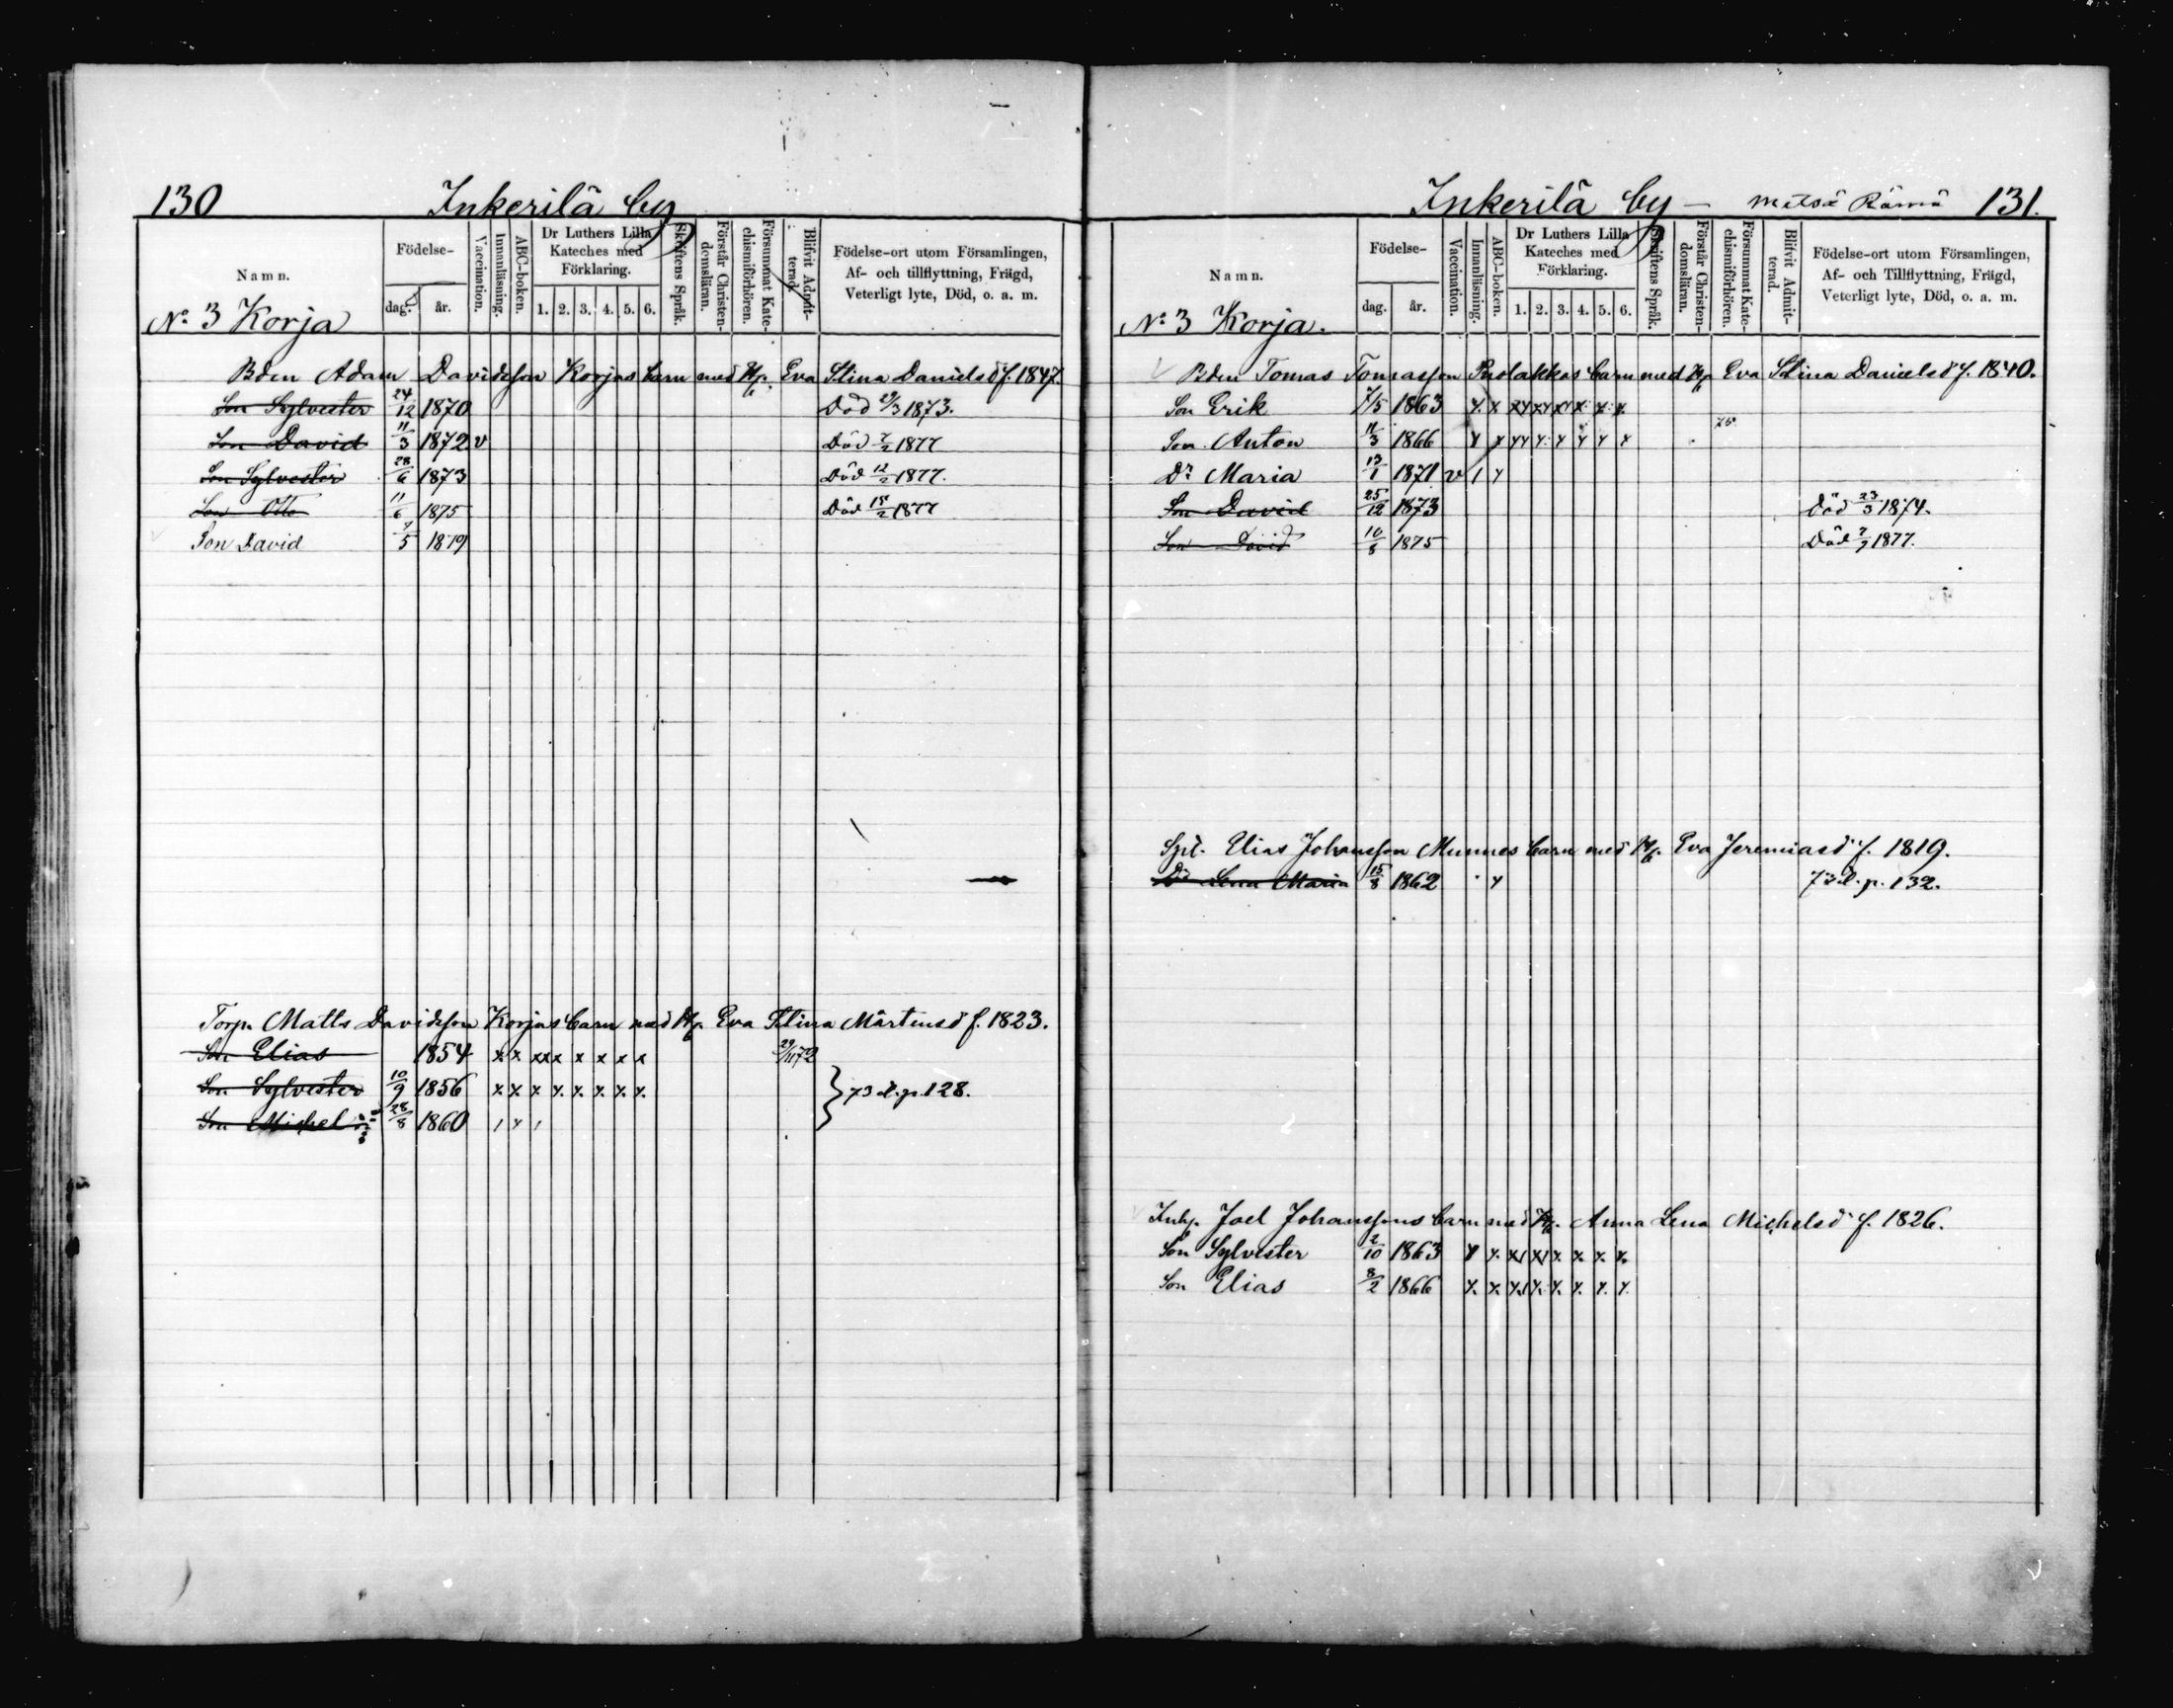 130 Inkerilä by
Namn. Födelse- dag. år. Vaccination. Innanläsning. ABC-boken. Dr Luthers Lilla Kateches med Förklaring. 1. 2. 3. 4. 5. 6. Skriftens Språk. Förstår Christendomsläran. Försummat Katechismiförhören. Blifvit Admitterad. Födelse-ort utom Församlingen, Af- och tillflyttning, Frägd, Veterligt lyte, Död, o. a. m.
No 3 Korja
Bden Adam Davidsson Korjas barn med H. Eva Stina Danielsd f. 1847.
Son Sylvester 24/12 1870 Död 29/3 1873.
Son David 11/3 1872 v Död 7/2 1877
Son Sylvester 28/6 1873 Död 12/2 1877.
Son Otto 11/6 1875 Död 15/2 1877
Son David 4/5 1879
Torp. Matts Davidsson Korjas barn med H. Eva Stina Mårtensd f. 1823.
Son Elias 1854 x x xxx x x x x 29/11 72
Son Sylvester 10/9 1856 x x x x x x x x } 73 l. p. 128.
Son Michel 28/8 1860
Inkerilä by – metsä Rämä 131.
Namn. Födelse- dag. år. Vaccination. Innanläsning. ABC-boken. Dr Luthers Lilla Kateches med Förklaring. 1. 2. 3. 4. 5. 6. Skriftens Språk. Förstår Christendomsläran. Försummat Katechismiförhören. Blifvit Admitterad. Födelse-ort utom Församlingen, Af- och Tillflyttning, Frägd, Veterligt lyte, Död, o. a. m.
No 3 Korja.
Bden Tomas Tomasson Puolakkas barn med H. Eva Stina Danielsd f. 1840.
Son Erik 7/5 1863
Son Anton 11/3 1866 75
Dr Maria 13/1 1871 v
Son David 25/12 1873 Död 23/3 1874.
Son David 10/8 1875 Död 2/7 1877.
Spt. Elias Johansson Munnes barn med H. Eva Jeremiasd f. 1819.
Dr Lena Maria 15/8 1862 73 l. p. 132.
Inh. Joel Johanssons barn med H. Anna Lena Michelsd f. 1826.
Son Sylvester 2/10 1863
Son Elias 8/2 1866